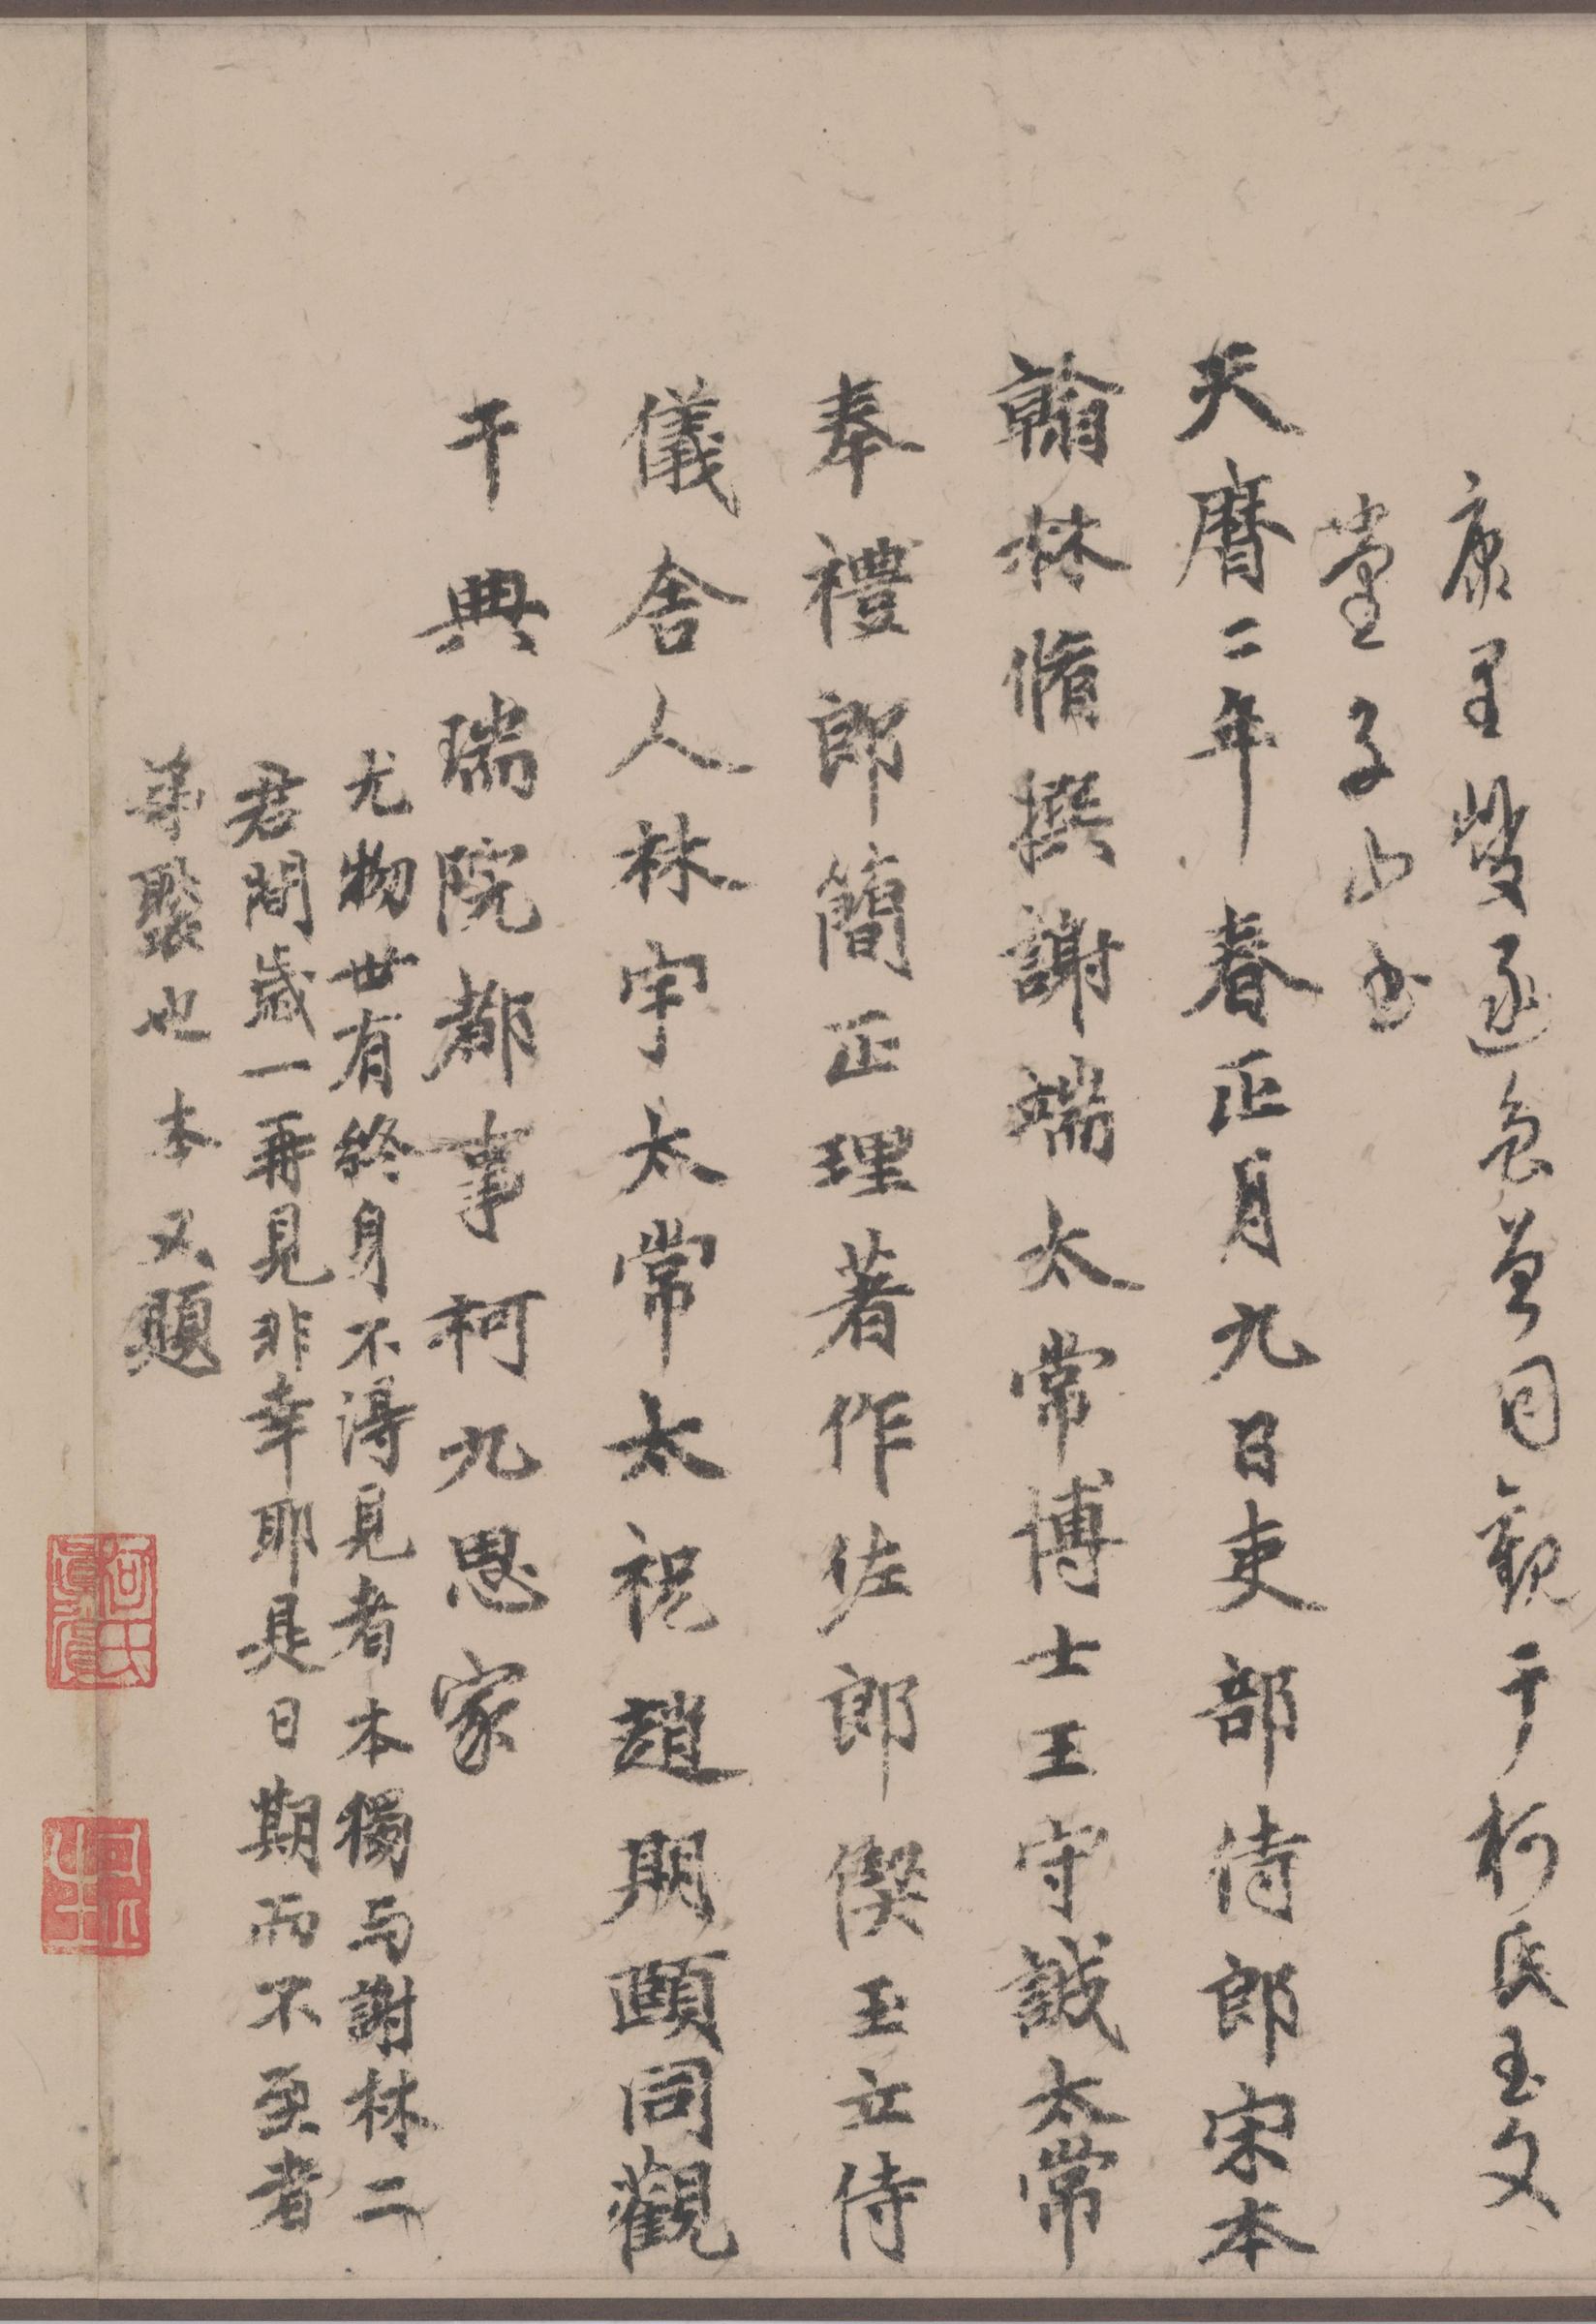 康里巙遂危益同觀于柯氏玉文
堂子山書
天曆二年春正月九日吏部侍郎宋本
翰林脩撰謝端太常博士王守誠太常
奉禮郎簡正理著作佐郎偰玉立侍
儀舍人林宇太常太祝趙期頤同觀
于典瑞院都事柯九思家
尤物世有終身不得見者本獨与謝林二
君間歲一再見非幸耶是日期而不至者
葬聚也本又題
柯氏